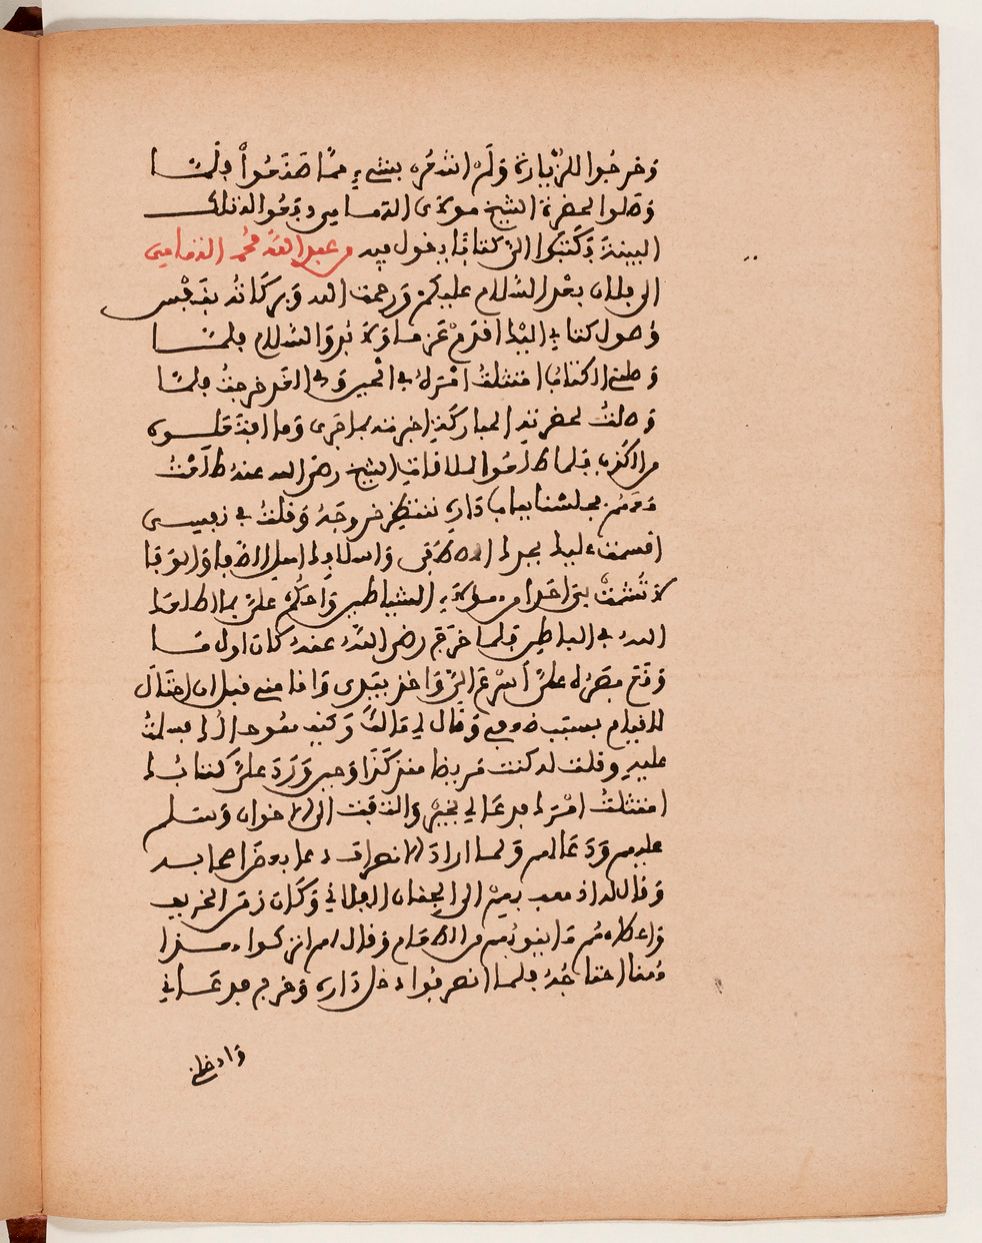 وخرجوا للزيارة ولم اشعره بشيء مما صدموا فلما
وصلوا لحضرة الشيخ مولاي الدماصي دفعوا لذلك
البينة وكتبوا الي كتابا يقول فيه من عبد الله محمد الدماصي
الى فلان بعد السلام عليكم ورحمت الله وبركاته بنفس
وصول كتابي اليك اقدم عزما ولا بد والسلام فلما
وصلني الكتاب امتثلت امره في الحين وفي الغد خرجت فلما
وصلت لحضرته المباركة اخبرته بما جرى وما
فلما طلعوا لملاقات الشيخ رضي الله عنه طلعت
معهم فجلسنا بباب داره ننتظر خروجه وقلت في نفسي
اقسمت عليك بجدك المصطفى واسلافك اهل الصفا والوفا
لا تشمت بي احدا من مولاي الشياطين واحكم علي بما اطلعك
الله في الباطن فلما خرج رضي الله عنه كان اول ما
وقع بصره علي اسرع الي واخذ بيدي وانا منعي قبل ان احتال
للقيام بسبب ضعفي وقال لي مالك وكيف هو حالك فسلمت
عليه وقلت له كنت مريضا منذ كذا وحين ورد علي كتابك
امتثلت امرك فدعا لي بخير والتفت الى الاخوان وسلم
عليهم ودعا لهم ولما اراد الانصراف دعا بعض اصحابه
وقال له اذهب بهم الى الجنان الفلاني وكان زمن الخريف
واعطاهم ما ينوبهم من الطعام وقال لهم اتركوا هذا
هنا احتاجه فلما انصرفوا دخل داره وخرج فدعاني
وادخلني